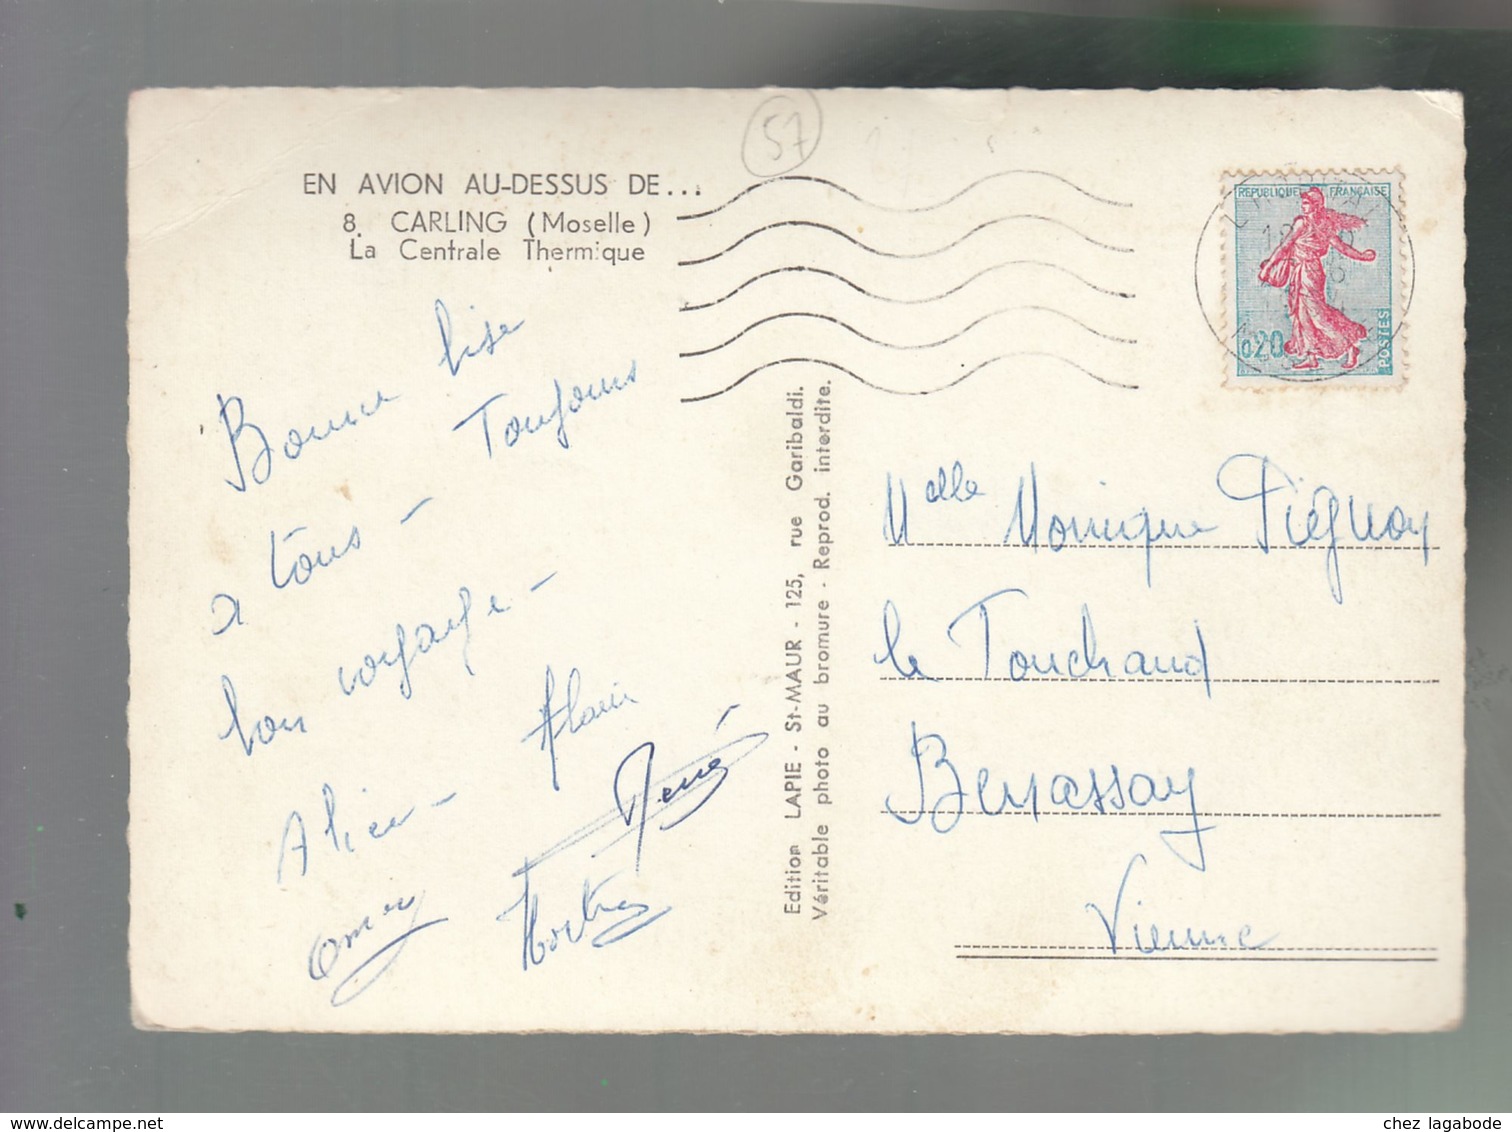 57
EN AVION AU-DESSUS DE...
8. CARLING (Moselle)
La Centrale Thermique
REPUBLIQUE FRANÇAISE
0,20
POSTES
Bonne bise
Toujours
a tous -
bon voyage -
Alain
Alice -
René
Omer
Edition LAPIE - St-MAUR - 125, rue Garibaldi.
Véritable photo au bromure - Reprod. interdite.
Melle Monique Pignon
le Touchaud
Benassay
Vienne
chez lagabode